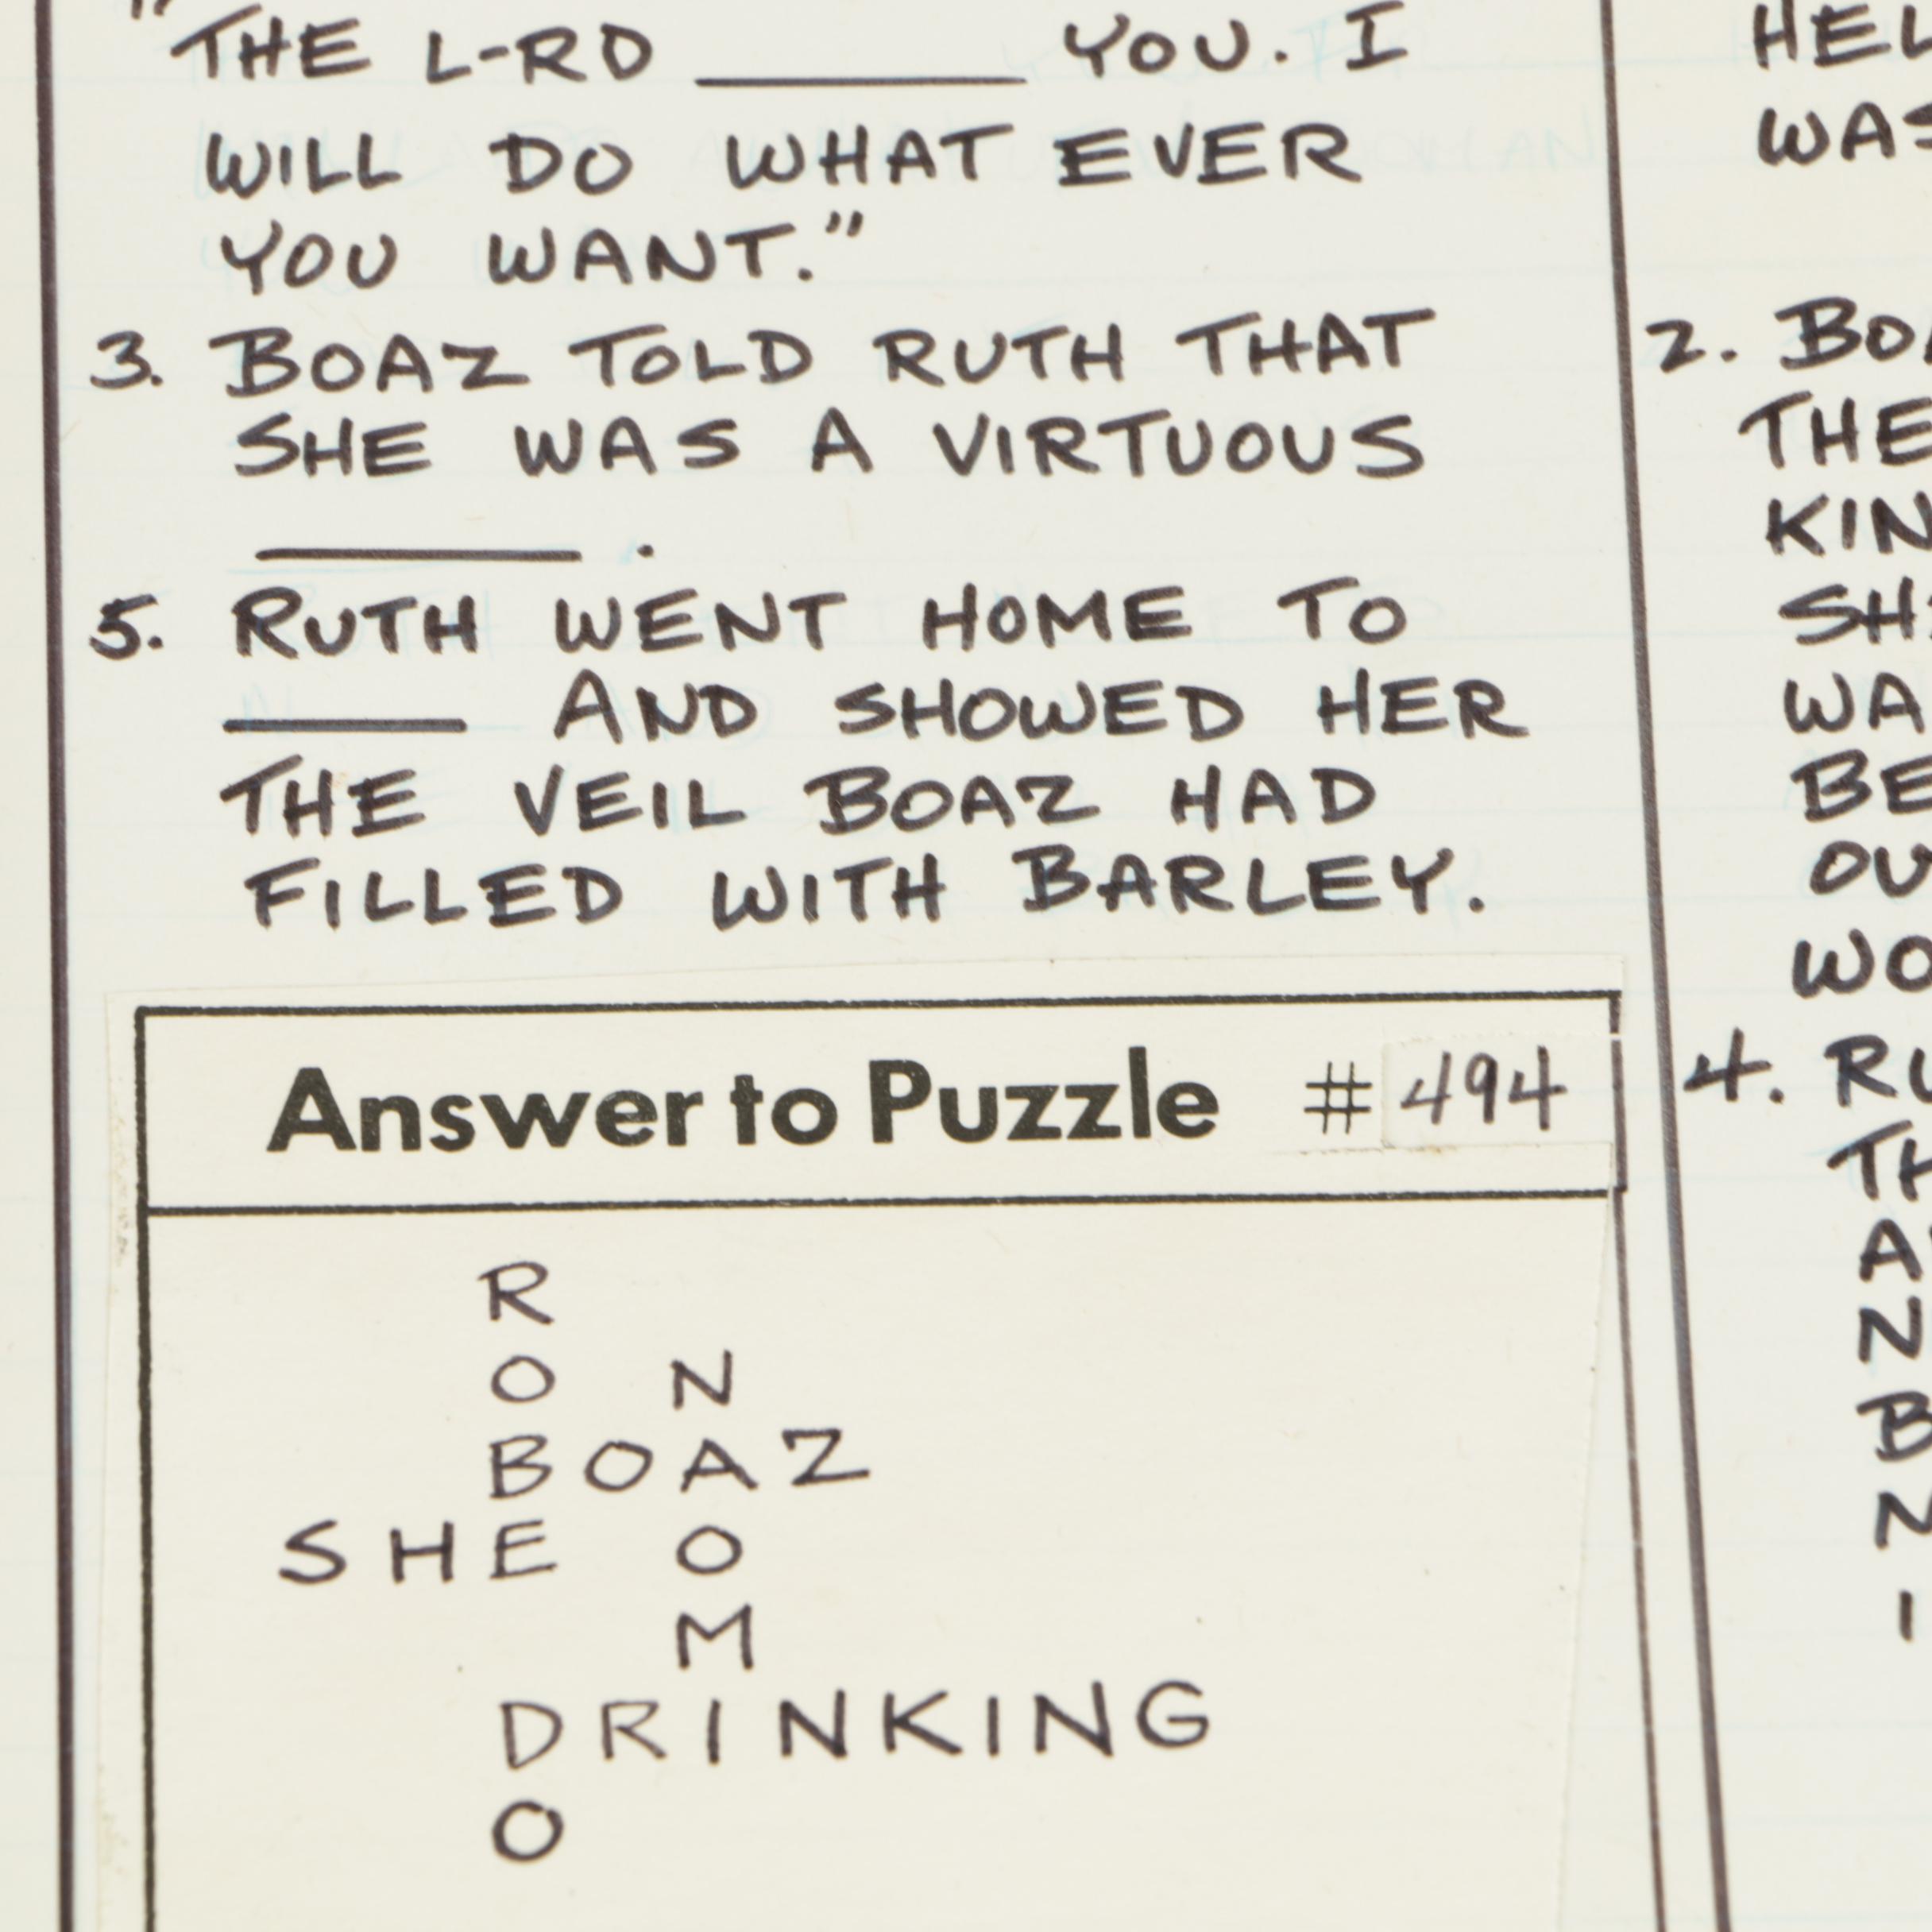 "THE L-RD ______ YOU. I
WILL DO WHAT EVER
YOU WANT."
3. BOAZ TOLD RUTH THAT
SHE WAS A VIRTUOUS
______ .
5. RUTH WENT HOME TO
_____ AND SHOWED HER
THE VEIL BOAZ HAD
FILLED WITH BARLEY.
Answer to Puzzle #494
R
O N
BOAZ
SHE O
M
DRINKING
O
WAS
2.
THE
4.